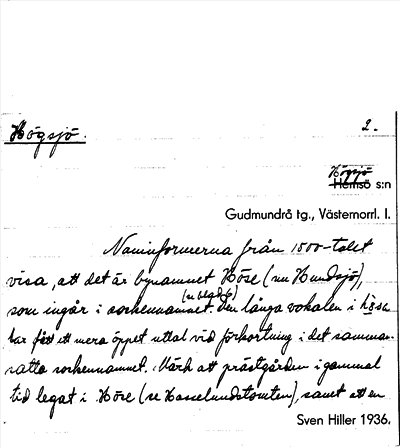 Högsjö.
2.
Högsjö
Hemsö s:n
Gudmundrå tg., Västernorrl. l.
Namnformerna från 1500-talet
visa, att det är bynamnet Höse (nu Hundsjö),
(se blad 6)
som ingår i sockennamnet. Den långa vokalen i
har fått ett mera öppet uttal vid förkortning i det samman-
satta sockennamnet. Märk att prästgården i gammal
tid legat i Höse (se Hasselundstomten), samt att en
Sven Hiller 1936.